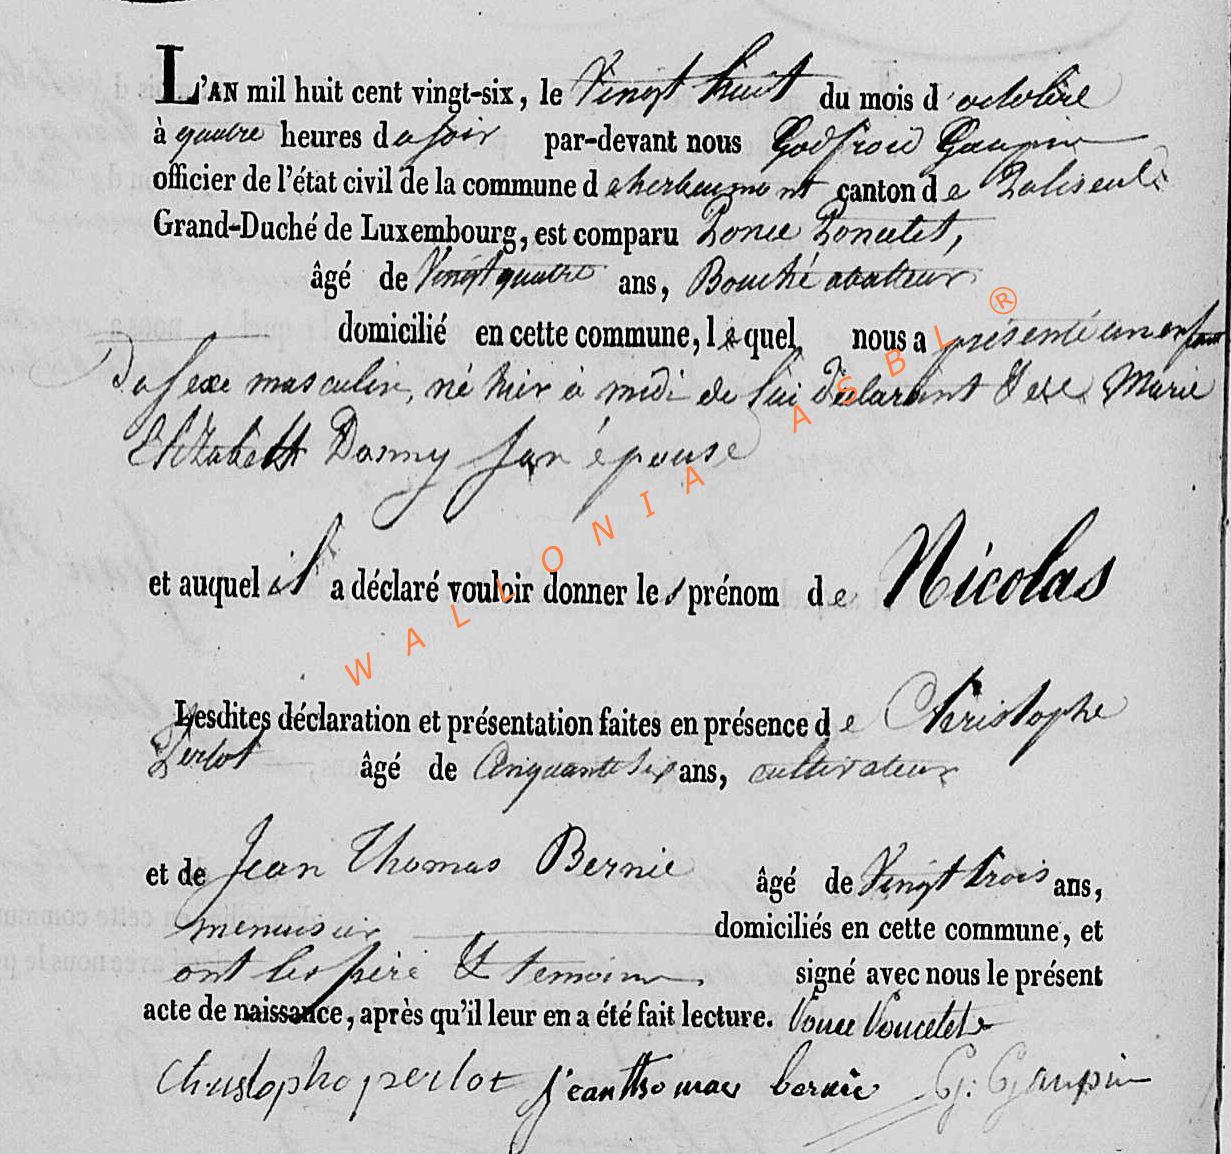 L'AN mil huit cent vingt-six, le Vingt huit du mois d'octobre
à quatre heures du soir par-devant nous Godfroid Gaupin
officier de l'état civil de la commune d'herbeumont canton de Paliseul
Grand-Duché de Luxembourg, est comparu Ponce Poncelet,
âgé de Vingt quatre ans, Bouché abatteur
domicilié en cette commune, lequel nous a présenté un enfant
Du Sexe masculin, né hier à midi de lui déclarant & de Marie
Elizabeth Danny son épouse
et auquel il a déclaré vouloir donner le prénom de Nicolas
Lesdites déclaration et présentation faites en présence de Christophe
Perlot âgé de Cinquante six ans, cultivateur
et de Jean Thomas Bernie âgé de Vingt trois ans,
menuisier domiciliés en cette commune, et
ont les père & temoins signé avec nous le présent
acte de naissance, après qu'il leur en a été fait lecture. Ponce Poncelet
Christophe perlot jean thomas bernie G: Gaupin
WALLONIA ASBL ®